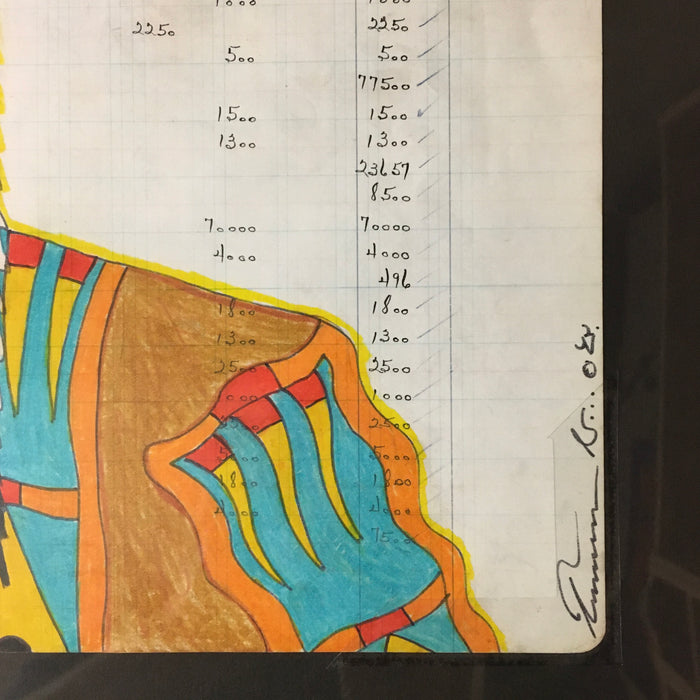 1000 1000
2250 2250
500 500
77500
1500 1500
1300 1300
23657
8500
70000 70000
4000 4000
496
1800 1800
1300 1300
2500 2500
000 1000
2500
5000
1800 1800
4000 4000
7500